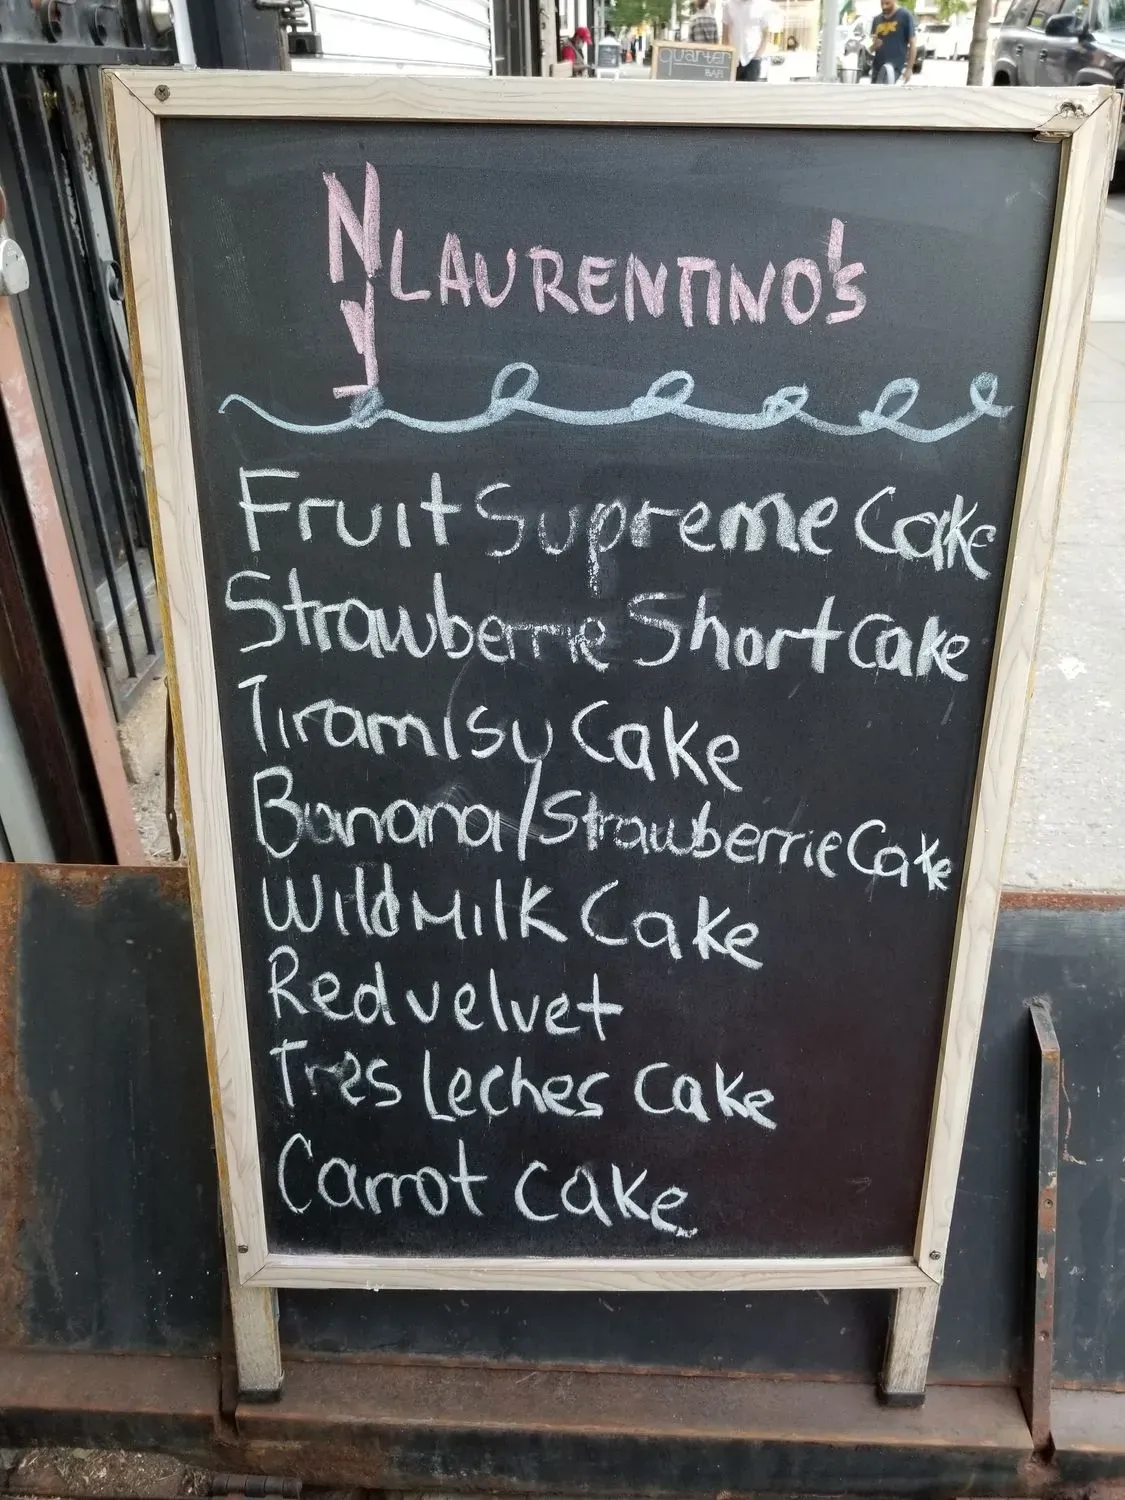 quarter
BAR
NY LAURENTINO'S
Fruit Supreme Cake
Strawberrie Short Cake
Tiramisu Cake
Banana/Strawberrie Cake
Wild Milk Cake
Red velvet
Tres Leches Cake
Carrot Cake